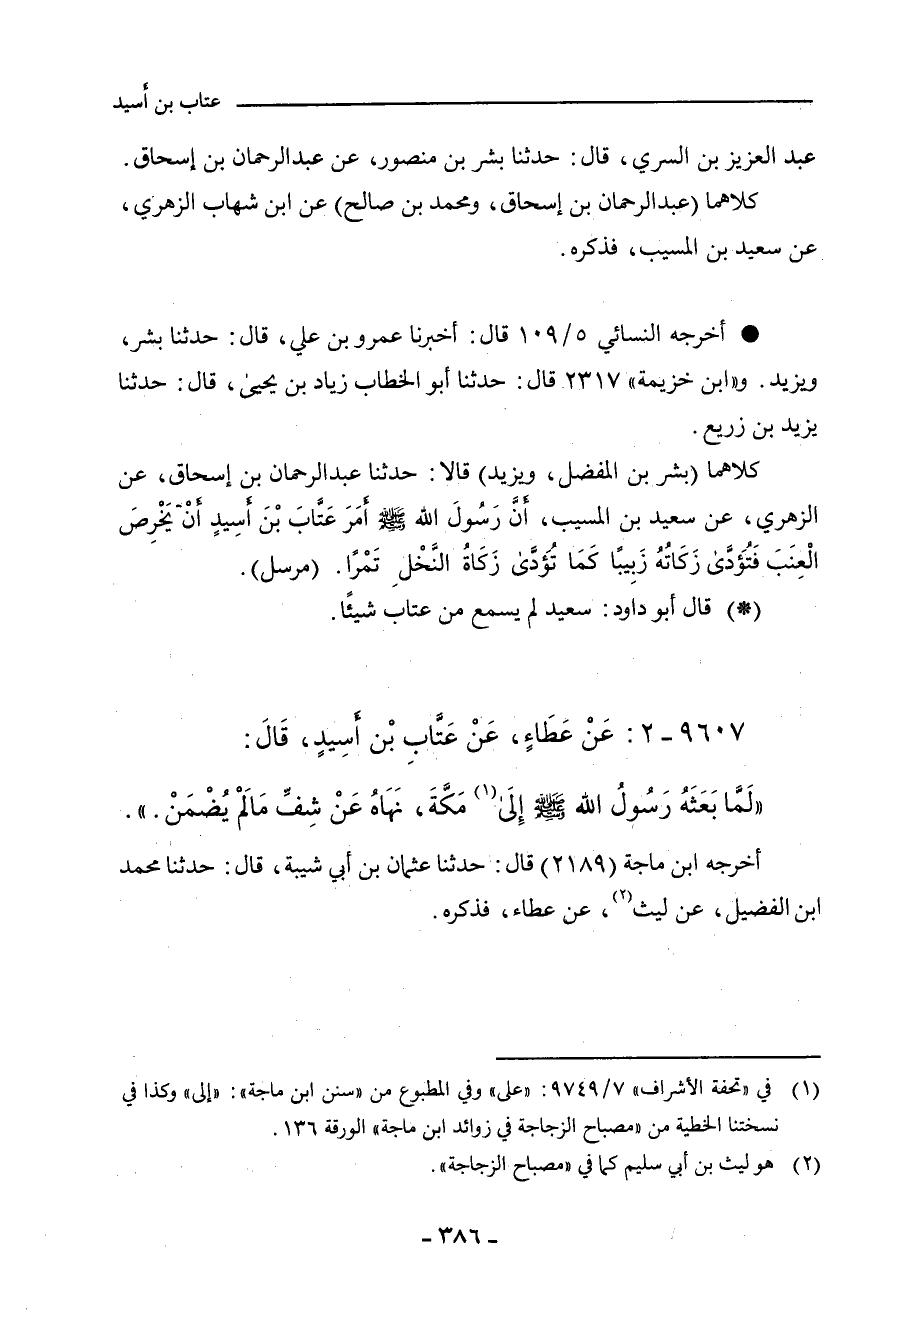 عتاب بن أَسيد
عبد العزيز بن السري، قال: حدثنا بشر بن منصور، عن عبدالرحمان بن إسحاق.
كلاهما (عبدالرحمان بن إسحاق، ومحمد بن صالح) عن ابن شهاب الزهري،
عن سعيد بن المسيب، فذكره.
● أخرجه النسائي ١٠٩/٥ قال: أخبرنا عمرو بن علي، قال: حدثنا بشر،
ويزيد. و«ابن خزيمة» ٢٣١٧ قال: حدثنا أبو الخطاب زياد بن يحيىٰ، قال: حدثنا
يزيد بن زريع.
كلاهما (بشر بن المفضل، ويزيد) قالا: حدثنا عبدالرحمان بن إسحاق، عن
الزهري، عن سعيد بن المسيب، أَنَّ رَسُولَ الله ﷺ أَمَرَ عَتَّابَ بْنَ أَسِيدٍ أَنْ يَخْرِصَ
الْعِنَبَ فَتُؤَدَّىٰ زَكَاتُهُ زَبِيبًا كَمَا تُؤَدَّىٰ زَكَاةُ النَّخْلِ تَمْرًا. (مرسل).
(*) قال أبو داود: سعيد لم يسمع من عتاب شيئًا.
٩٦٠٧ ـ ٢ : عَنْ عَطَاءٍ، عَنْ عَتَّابِ بْنِ أَسِيدٍ، قَالَ:
«لَمَّا بَعَثَهُ رَسُولُ الله ﷺ إِلَىٰ(١) مَكَّةَ، نَهَاهُ عَنْ شِفِّ مَالَمْ يُضْمَنْ.».
أخرجه ابن ماجة (٢١٨٩) قال: حدثنا عثمان بن أبي شيبة، قال: حدثنا محمد
ابن الفضيل، عن ليث(٢)، عن عطاء، فذكره.
(١) في «تحفة الأشراف» ٩٧٤٩/٧: «على» وفي المطبوع من «سنن ابن ماجة»: «إلى» وكذا في
نسختنا الخطية من «مصباح الزجاجة في زوائد ابن ماجة» الورقة ١٣٦.
(٢) هو ليث بن أبي سليم كما في «مصباح الزجاجة».
ـ ٣٨٦ ـ